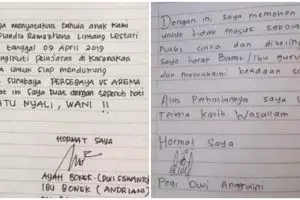 saya mengatakan bahwa anak kami
Diandra Ramadhona Lintang Lestari
tanggal 09 April 2019
mengikuti pelajaran di karenakan
untuk siap mendukung
Surabaya PERSEBAYA VS AREMA
ini saya buat dengan sepenuh hati
SATU NYALI, WANI !!
HORMAT SAYA
AYAH BONEK (DWI SISWANTO)
IBU BONEK (ANDRIANI)
Dengan ini saya memohon
untuk tidak masuk sekolah
Putus cinta dan diselin
saya harap Bapak/Ibu guru
dan memaklumi keadaan s
Atas Perhatiannya saya u
Terima kasih Wasallam
Hormat Saya
Pegi Dwi Anggraini